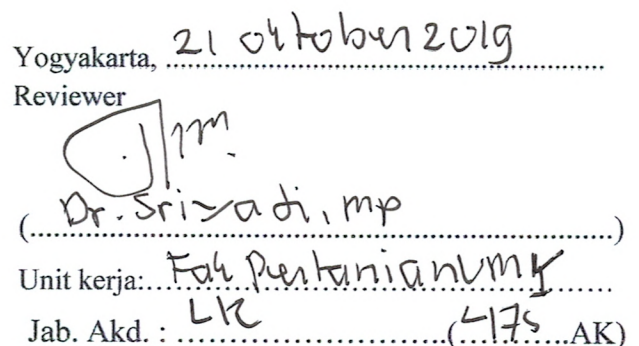 Yogyakarta, 21 oktober 2019
Reviewer
(Dr. Sriyadi, mp)
Unit kerja: Fak Pertanian UMY
Jab. Akd. : LK (475 AK)